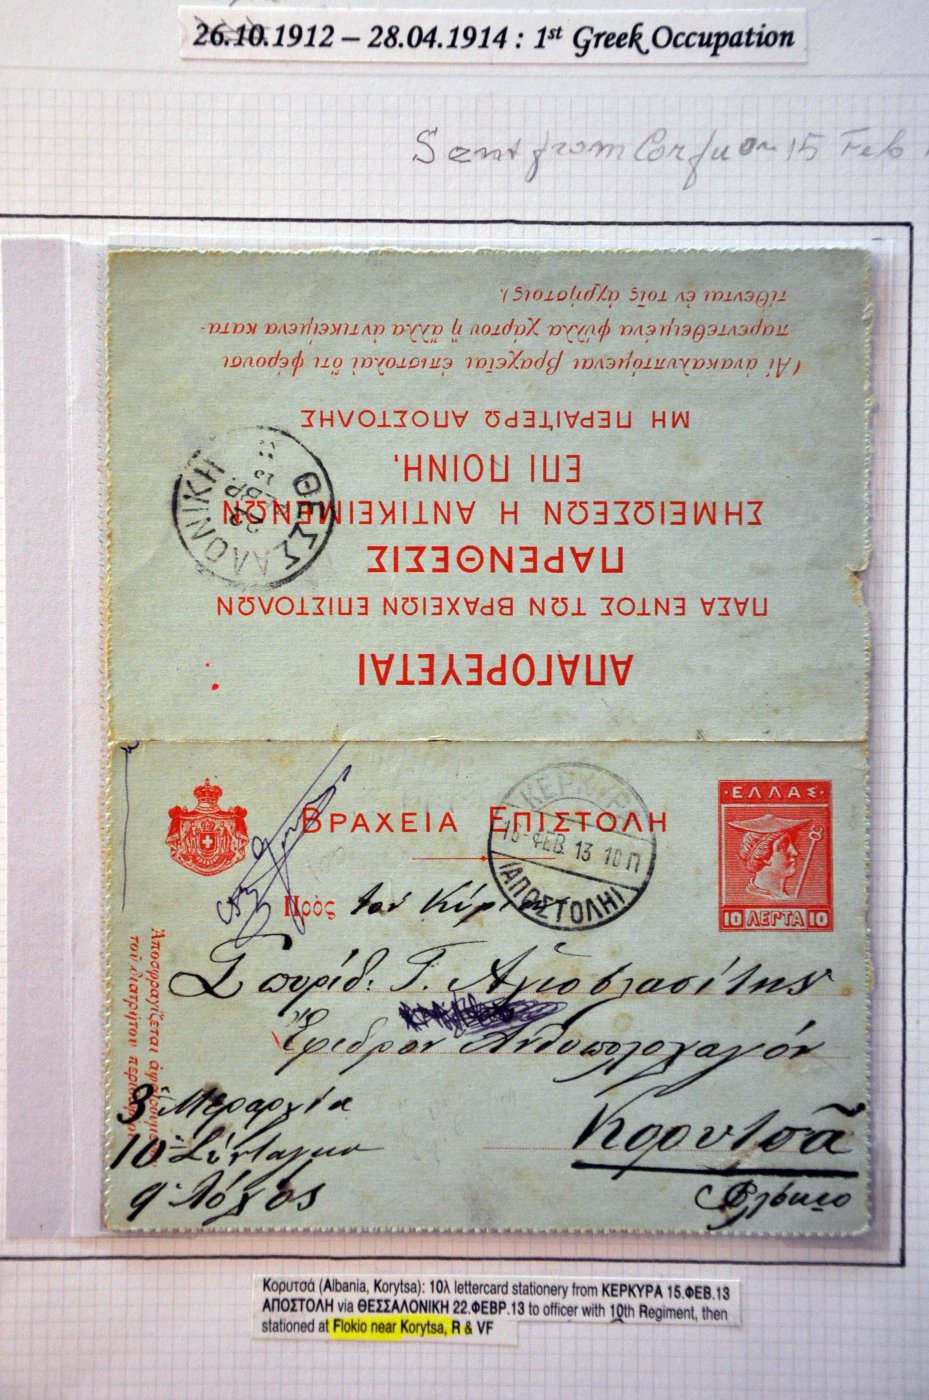 26.10.1912 – 28.04.1914 : 1st Greek Occupation
Sent from Corfu on 15 Feb
ΑΠΑΓΟΡΕΥΕΤΑΙ
ΠΑΣΑ ΕΝΤΟΣ ΤΩΝ ΒΡΑΧΕΙΩΝ ΕΠΙΣΤΟΛΩΝ
ΠΑΡΕΝΘΕΣΙΣ
ΣΗΜΕΙΩΣΕΩΝ Η ΑΝΤΙΚΕΙΜΕΝΩΝ
ΕΠΙ ΠΟΙΝΗ,
ΜΗ ΠΕΡΑΙΤΕΡΩ ΑΠΟΣΤΟΛΗΣ
(Αἱ ἀνακαλυπτόμεναι βραχεῖαι ἐπιστολαὶ ὅτι φέρουσι
παρεντεθειμένα φύλλα χάρτου ἢ ἄλλα ἀντικείμενα κατα-
τίθενται ἐν τοῖς ἀχρήστοις).
ΘΕΣΣΑΛΟΝΙΚΗ
22 ΦΕΒΡ. 13
ΒΡΑΧΕΙΑ ΕΠΙΣΤΟΛΗ
ΚΕΡΚΥΡΑ
15-ΦΕΒ. 13 10 Π
(ΑΠΟΣΤΟΛΗ)
ΕΛΛΑΣ
10 ΛΕΠΤΑ 10
Πρὸς τον Κύριον
Σπυρίδ. Γ. Αγιοβλασίτην
Ἔφεδρον Ανθυπολοχαγόν
Κορυτσᾶ
Φλόκιο
3 Μεραρχία
10 Σύνταγμα
9 Λόχος
Ἀποσφραγίζεται ἀφαιρουμένου
τοῦ διατρήτου περιθωρίου
Κορυτσά (Albania, Korytsa): 10λ lettercard stationery from ΚΕΡΚΥΡΑ 15.ΦΕΒ.13
ΑΠΟΣΤΟΛΗ via ΘΕΣΣΑΛΟΝΙΚΗ 22.ΦΕΒΡ.13 to officer with 10th Regiment, then
stationed at Flokio near Korytsa, R & VF